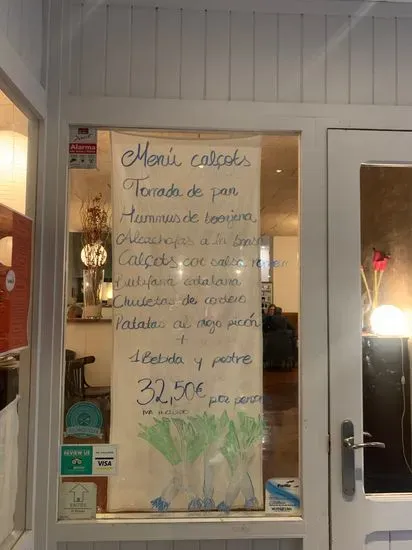 Menú calçots
Torrada de pan
Hummus de berenjena
Alcachofas a la brasa
Calçots con salsa romesc
Butifarra catalana
Chuletas de cordero
Patatas al mojo picón
+
1 Bebida y postre
32,50€ por persona
IVA incluido
Alarma
REVIEW US
VISA